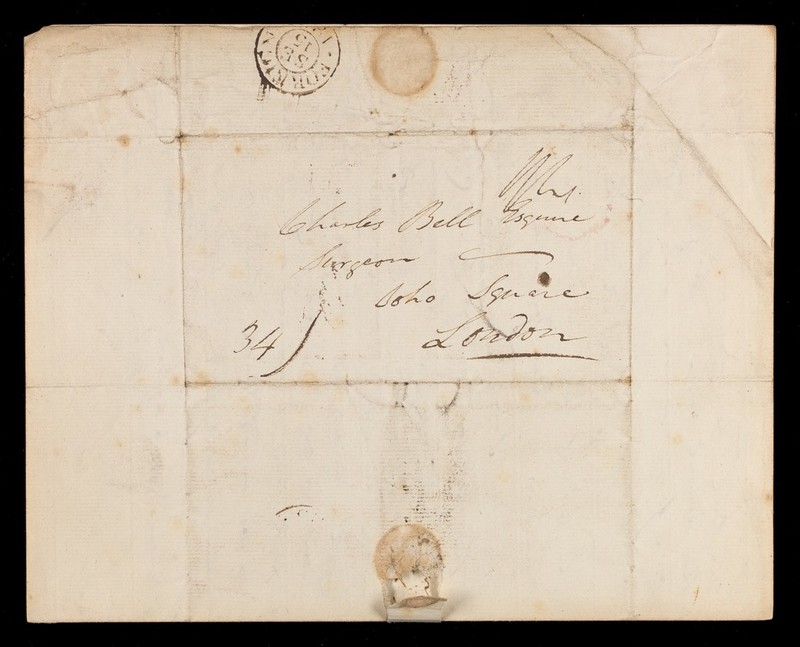 FOREIGN
SE
15
Charles Bell Esquire
Surgeon
Soho Square
34
London